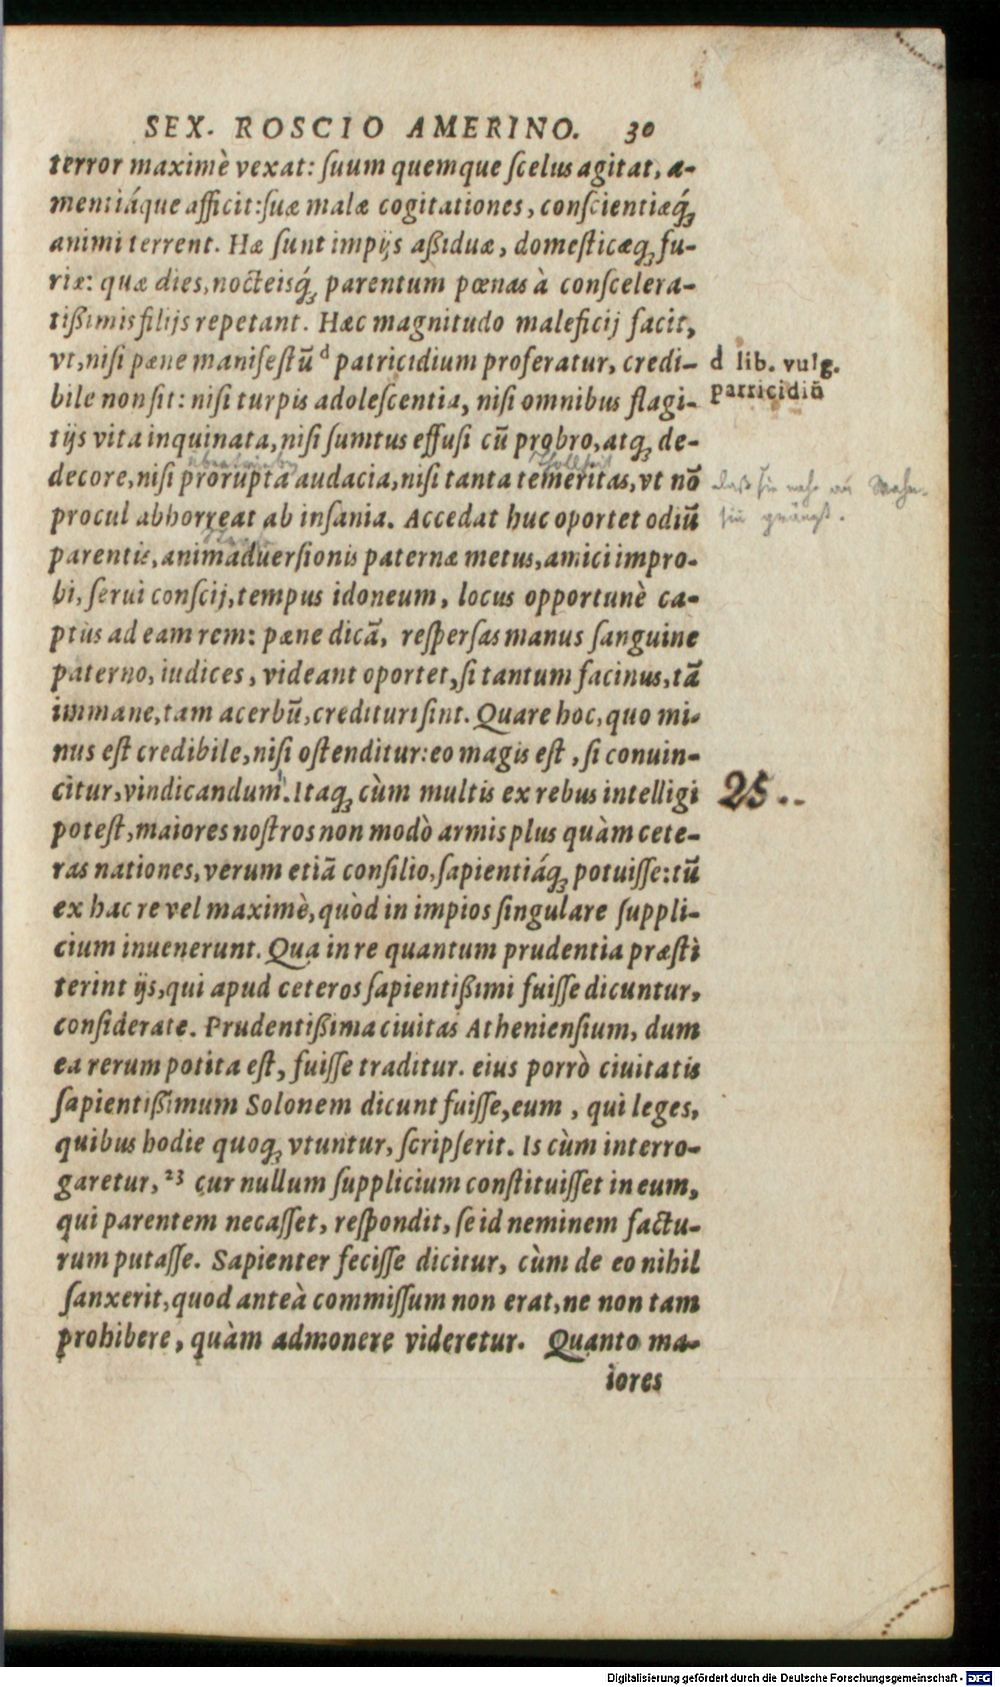 SEX. ROSCIO AMERINO. 30
terror maximè vexat: ſuum quemque ſcelus agitat, a-
mentiáque afficit:ſuæ malæ cogitationes, conſcientiæq́ꝫ
animi terrent. Hæ ſunt impijs aßiduæ, domeſticæqꝫ fu-
riæ: quæ dies, nocteisq́ꝫ parentum pœnas à conſcelera-
tißimis filijs repetant. Hæc magnitudo maleficij facit,
vt, niſi pæne manifeſtū ᵈ patricidium proferatur, credi-
d lib. vulg.
parricidiū
bile non ſit: niſi turpis adoleſcentia, niſi omnibus flagi-
tijs vita inquinata, niſi ſumtus effuſi cū probro, atqꝫ de-
decore, niſi prorupta audacia, niſi tanta temeritas, vt nō
daß sie nahe an Wahn-
procul abhorreat ab inſania. Accedat huc oportet odiū
parentis, animaduerſionis paternæ metus, amici impro-
bi, ſerui conſcij, tempus idoneum, locus opportunè ca-
ptus ad eam rem: pæne dicā, reſperſas manus ſanguine
paterno, iudices, videant oportet, ſi tantum facinus, tā
immane, tam acerbū, credituri ſint. Quare hoc, quo mi-
nus eſt credibile, niſi oſtenditur: eo magis eſt, ſi conuin-
citur, vindicandum. Itaqꝫ cùm multis ex rebus intelligi
25..
poteſt, maiores noſtros non modò armis plus quàm cete-
ras nationes, verum etiā conſilio, ſapientiáqꝫ potuiſſe: tū
ex hac re vel maximè, quòd in impios ſingulare ſuppli-
cium inuenerunt. Qua in re quantum prudentia præſti
terint ijs, qui apud ceteros ſapientißimi fuiſſe dicuntur,
conſiderate. Prudentißima ciuitas Athenienſium, dum
ea rerum potita eſt, fuiſſe traditur. eius porrò ciuitatis
ſapientißimum Solonem dicunt fuiſſe, eum , qui leges,
quibus hodie quoqꝫ vtuntur, ſcripſerit. Is cùm interro-
garetur, ²³ cur nullum ſupplicium conſtituiſſet in eum,
qui parentem necaſſet, reſpondit, ſe id neminem factu-
rum putaſſe. Sapienter feciſſe dicitur, cùm de eo nihil
ſanxerit, quod anteà commiſſum non erat, ne non tam
prohibere, quàm admonere videretur. Quanto ma-
iores
Digitalisierung gefördert durch die Deutsche Forschungsgemeinschaft - DFG